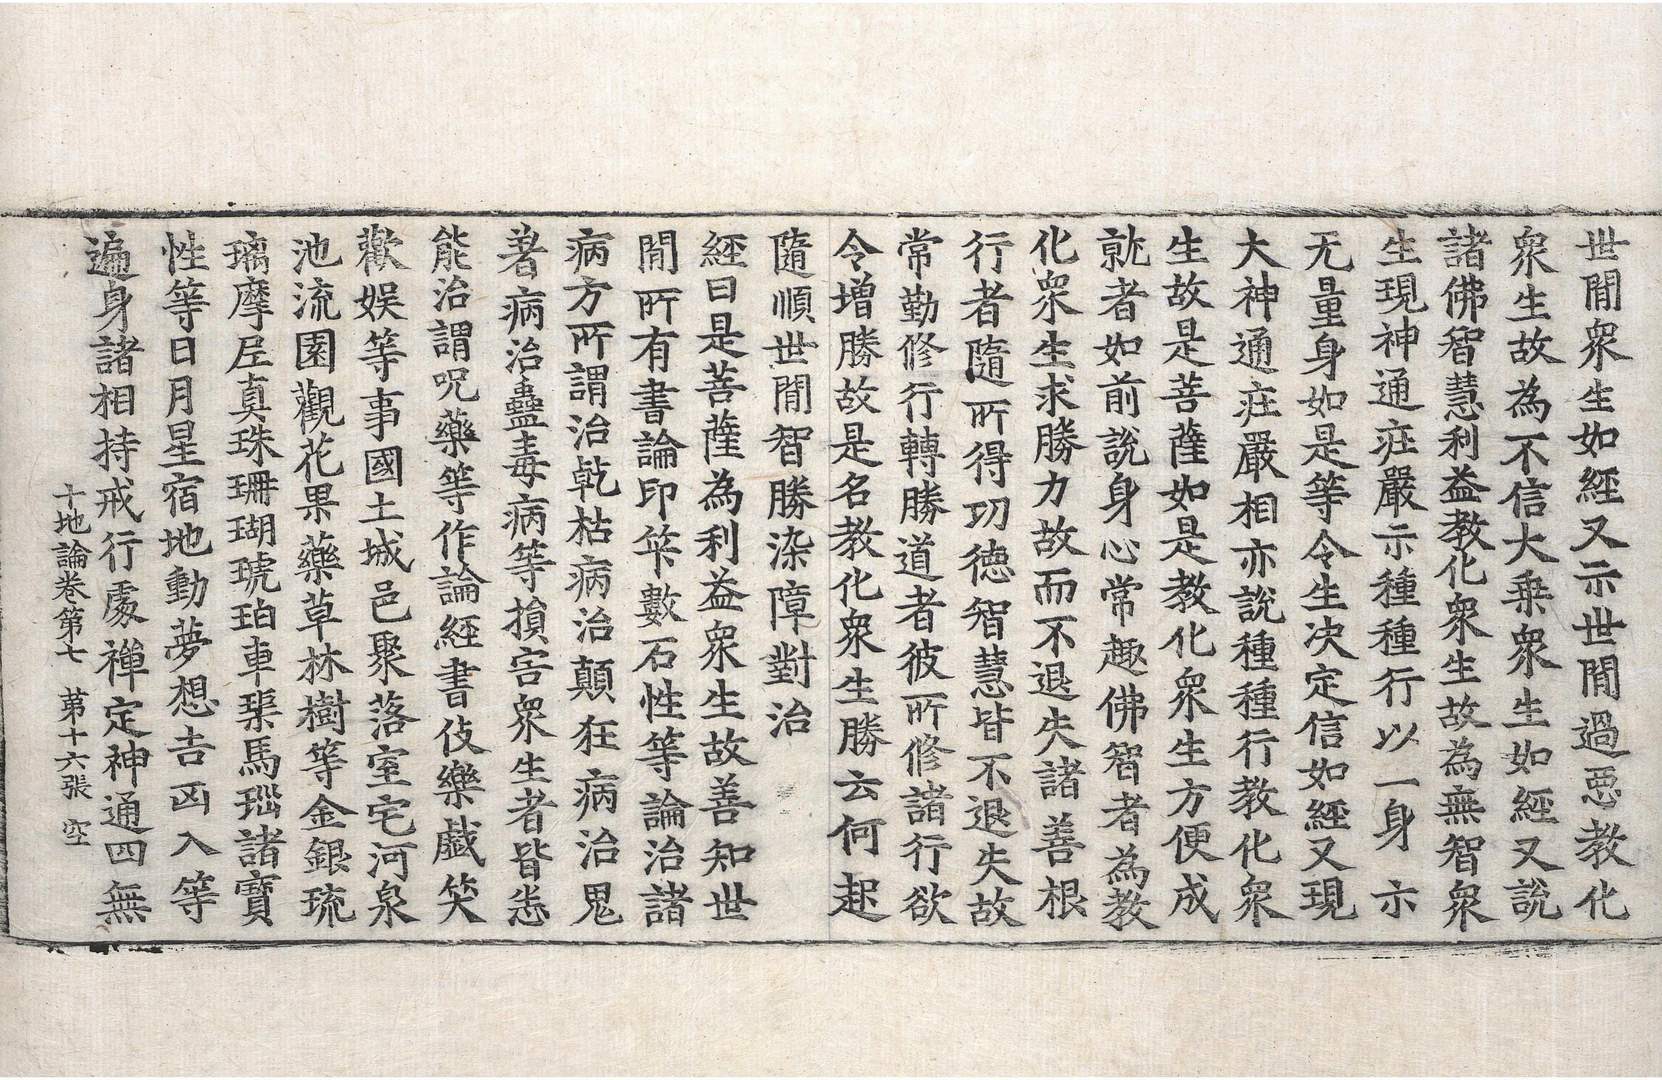 世間衆生如經又示世間過惡教化
衆生故為不信大乗衆生如經又説
諸佛智慧利益教化衆生故為無智衆
生現神通莊嚴示種種行以一身示
无量身如是等令生决定信如經又現
大神通莊嚴相亦説種種行教化衆
生故是菩薩如是教化衆生方便成
就者如前説身心常趣佛智者為教
化衆生求勝力故而不退失諸善根
行者隨所得功德智慧皆不退失故
常勤修行轉勝道者彼所修諸行欲
令增勝故是名教化衆生勝云何起
隨順世間智勝染障對治
經曰是菩薩為利益衆生故善知世
間所有書論印筭數石性等論治諸
病方所謂治乹枯病治顛狂病治鬼
著病治蠱毒病等損害衆生者皆悉
能治謂呪藥等作論經書伎樂戲笑
歡娱等事國土城邑聚落室宅河泉
池流園觀花果藥草林樹等金銀琉
璃摩尼真珠珊瑚琥珀車璖馬瑙諸寶
性等日月星宿地動夢想吉凶入等
遍身諸相持戒行處禪定神通四無
十地論卷第七　第十六張　空